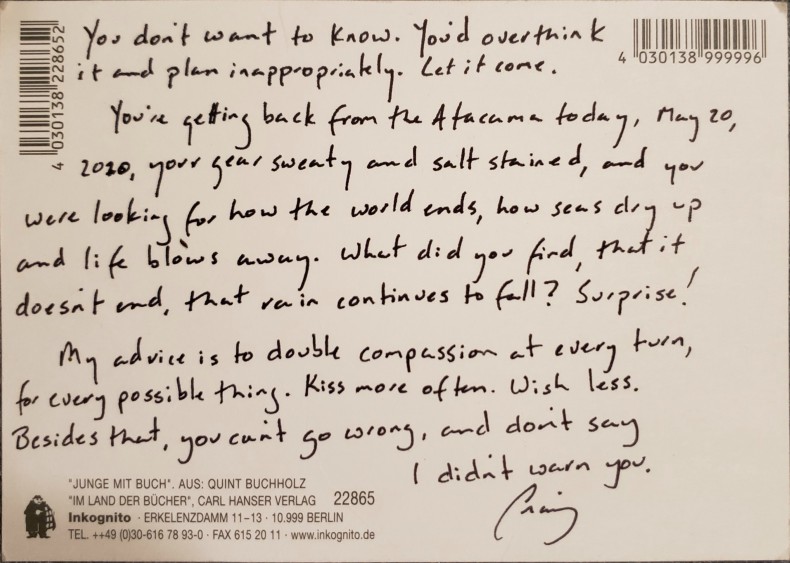 You don't want to know. You'd overthink
it and plan inappropriately. Let it come.
You're getting back from the Atacama today, May 20,
2020, your gear sweaty and salt stained, and you
were looking for how the world ends, how seas dry up
and life blows away. What did you find, that it
doesn't end, that rain continues to fall? Surprise!
My advice is to double compassion at every turn,
for every possible thing. Kiss more often. Wish less.
Besides that, you can't go wrong, and don't say
I didn't warn you.
Craig
4 030138 228652
4 030138 999996
"JUNGE MIT BUCH". AUS: QUINT BUCHHOLZ
"IM LAND DER BÜCHER", CARL HANSER VERLAG 22865
Inkognito · ERKELENZDAMM 11–13 · 10.999 BERLIN
TEL. ++49 (0)30-616 78 93-0 · FAX 615 20 11 · www.inkognito.de